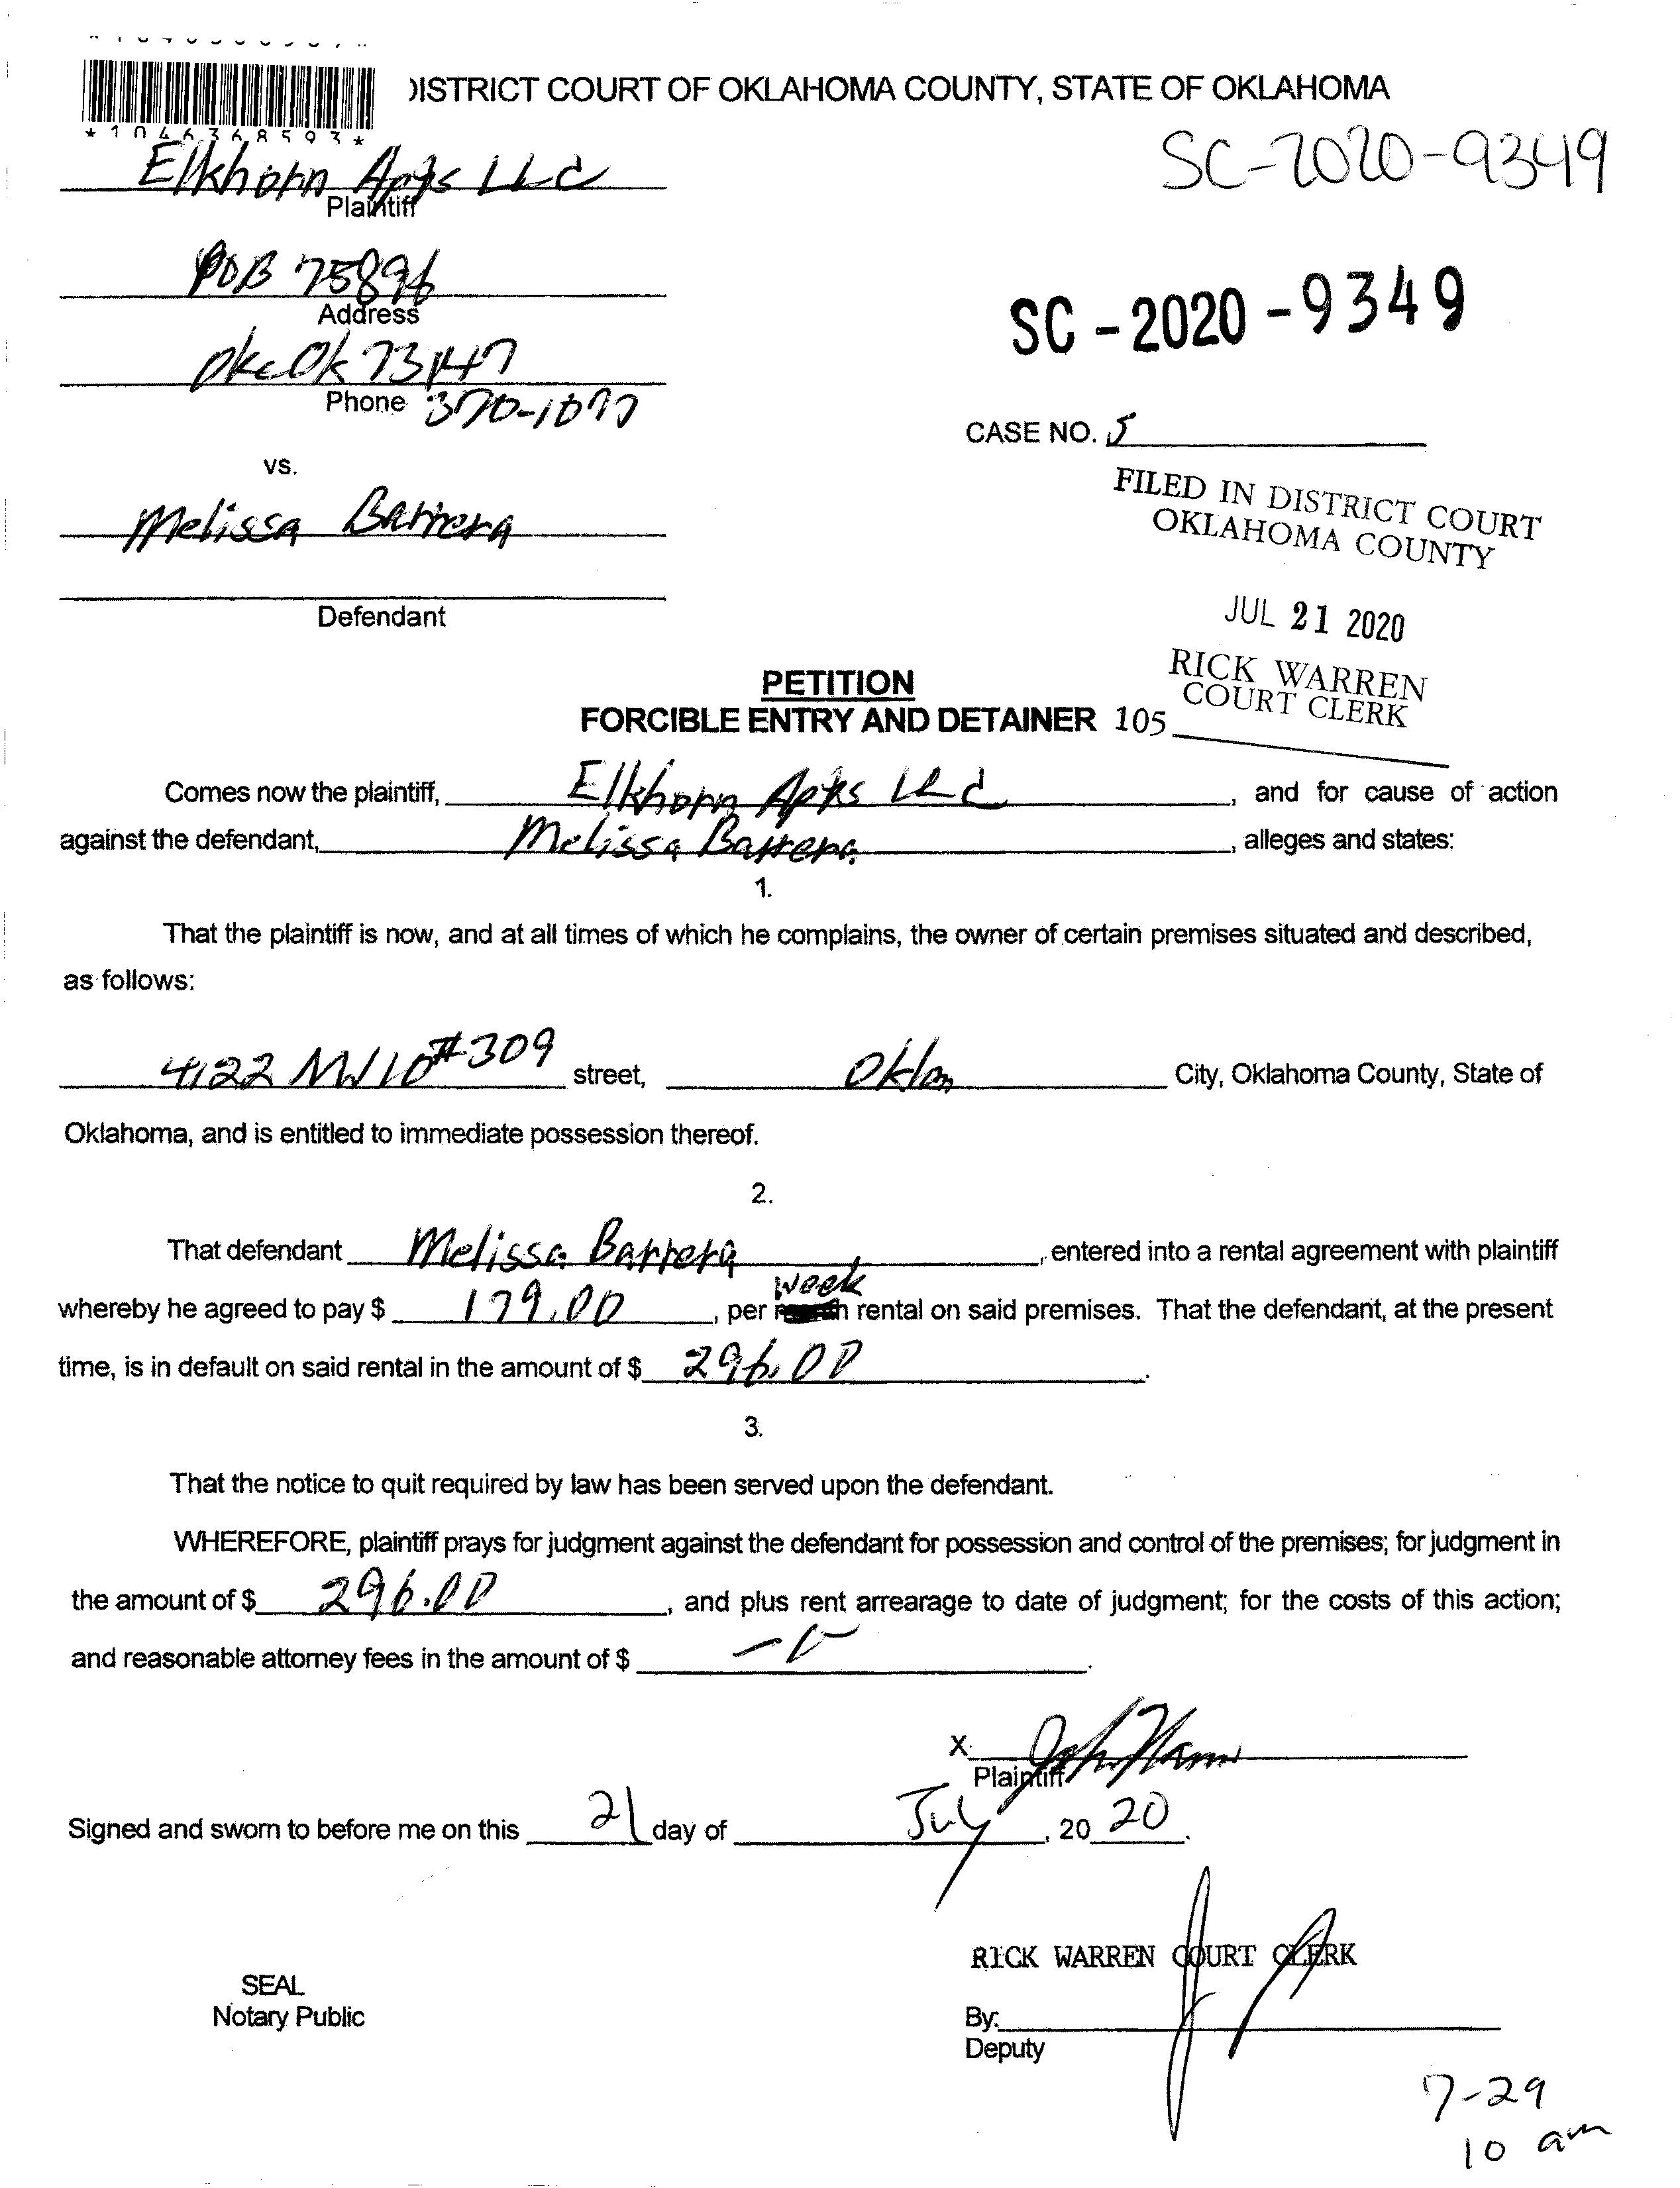 DISTRICT COURT OF OKLAHOMA COUNTY, STATE OF OKLAHOMA
*1046368593*
SC-2020-9349
Elkhorn Apts LLC
Plaintiff
POB 75896
Address
SC-2020-9349
Okc Ok 73147
Phone 370-1077
CASE NO. S
vs.
FILED IN DISTRICT COURT
OKLAHOMA COUNTY
Melissa Barrera
Defendant
JUL 21 2020
RICK WARREN
COURT CLERK
PETITION
FORCIBLE ENTRY AND DETAINER 105
Comes now the plaintiff, Elkhorn Apts LLC, and for cause of action
against the defendant, Melissa Barrera, alleges and states:
1.
That the plaintiff is now, and at all times of which he complains, the owner of certain premises situated and described,
as follows:
4122 NW 10 #309 street, Oklan City, Oklahoma County, State of
Oklahoma, and is entitled to immediate possession thereof.
2.
That defendant Melissa Barrera, entered into a rental agreement with plaintiff
whereby he agreed to pay $ 179.00, per week rental on said premises. That the defendant, at the present
time, is in default on said rental in the amount of $ 296.00.
3.
That the notice to quit required by law has been served upon the defendant.
WHEREFORE, plaintiff prays for judgment against the defendant for possession and control of the premises; for judgment in
the amount of $ 296.00, and plus rent arrearage to date of judgment; for the costs of this action;
and reasonable attorney fees in the amount of $
X
Plaintiff
Signed and sworn to before me on this 21 day of July, 20 20.
RICK WARREN COURT CLERK
SEAL
Notary Public
By:
Deputy
7-29
10 am